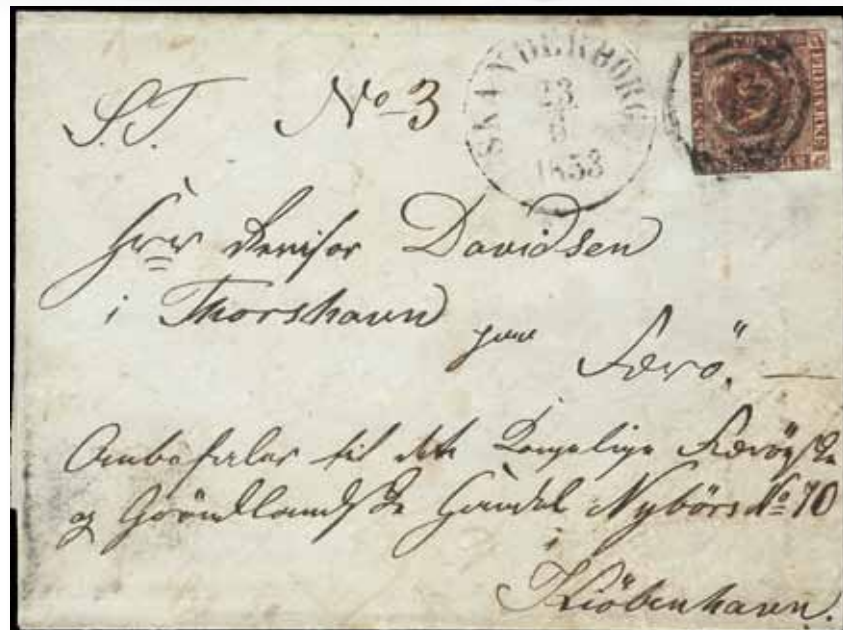 S.T. No 3
SKANDERBORG
1853
Herr Revisor Davidsen
i Thorshavn
paa Færö.
Anbefales til det Kongelige Færöyske
og Grönlandske Handel Nybörs No 10
i
Kiöbenhavn.